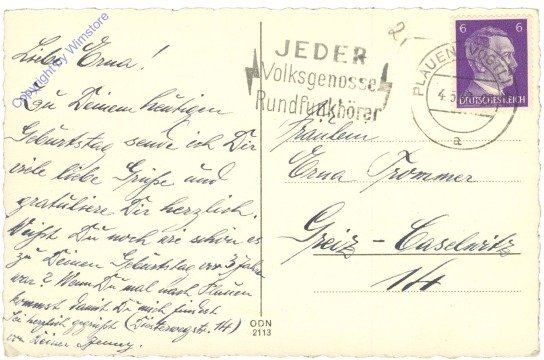 Copyright by Wimstore
Liebe Erna!
Zu Deinem heutigen
Geburtstag sende ich Dir
viele liebe Grüße und
gratuliere Dir herzlich.
Weißt Du noch wie schön es
zu Deinem Geburtstag vor 3 Jahren
war? Wenn Du mal nach Plauen
kommst damit Du mich findest
Sei herzlich gegrüßt (Diesterwegstr. 14)
von Deiner
ODN
2113
2,-
JEDER
Volksgenosse
Rundfunkhörer
PLAUEN (VOGTL)
a
6 6
DEUTSCHES REICH
Fräulein
Erna Trommer
Greiz - Caselwitz
14